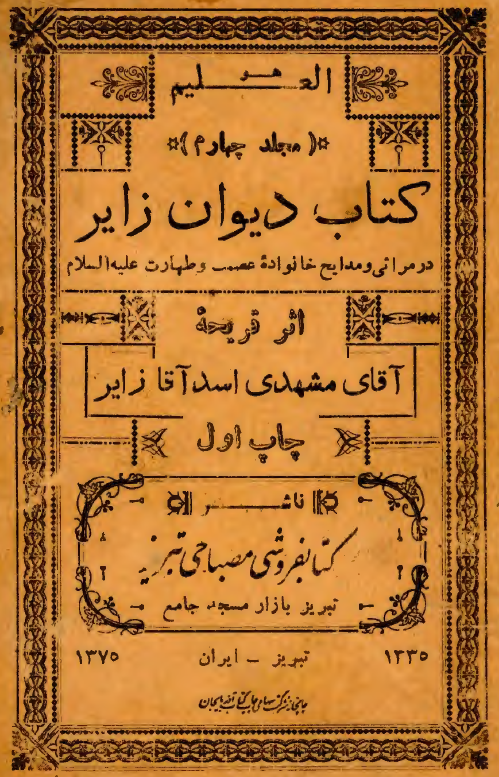 هو العلیم
(مجلد چهارم)
کتاب دیوان زایر
در مراثی و مدایح خانوادهٔ عصمت و طهارت علیه السلام
اثر قریحهٔ
آقای مشهدی اسد آقا زایر
چاپ اول
ناشر
کتابفروشی مصباحی تبریز
تبریز بازار مسجد جامع
۱۳۳۵ تبریز ـ ایران ۱۳۷۵